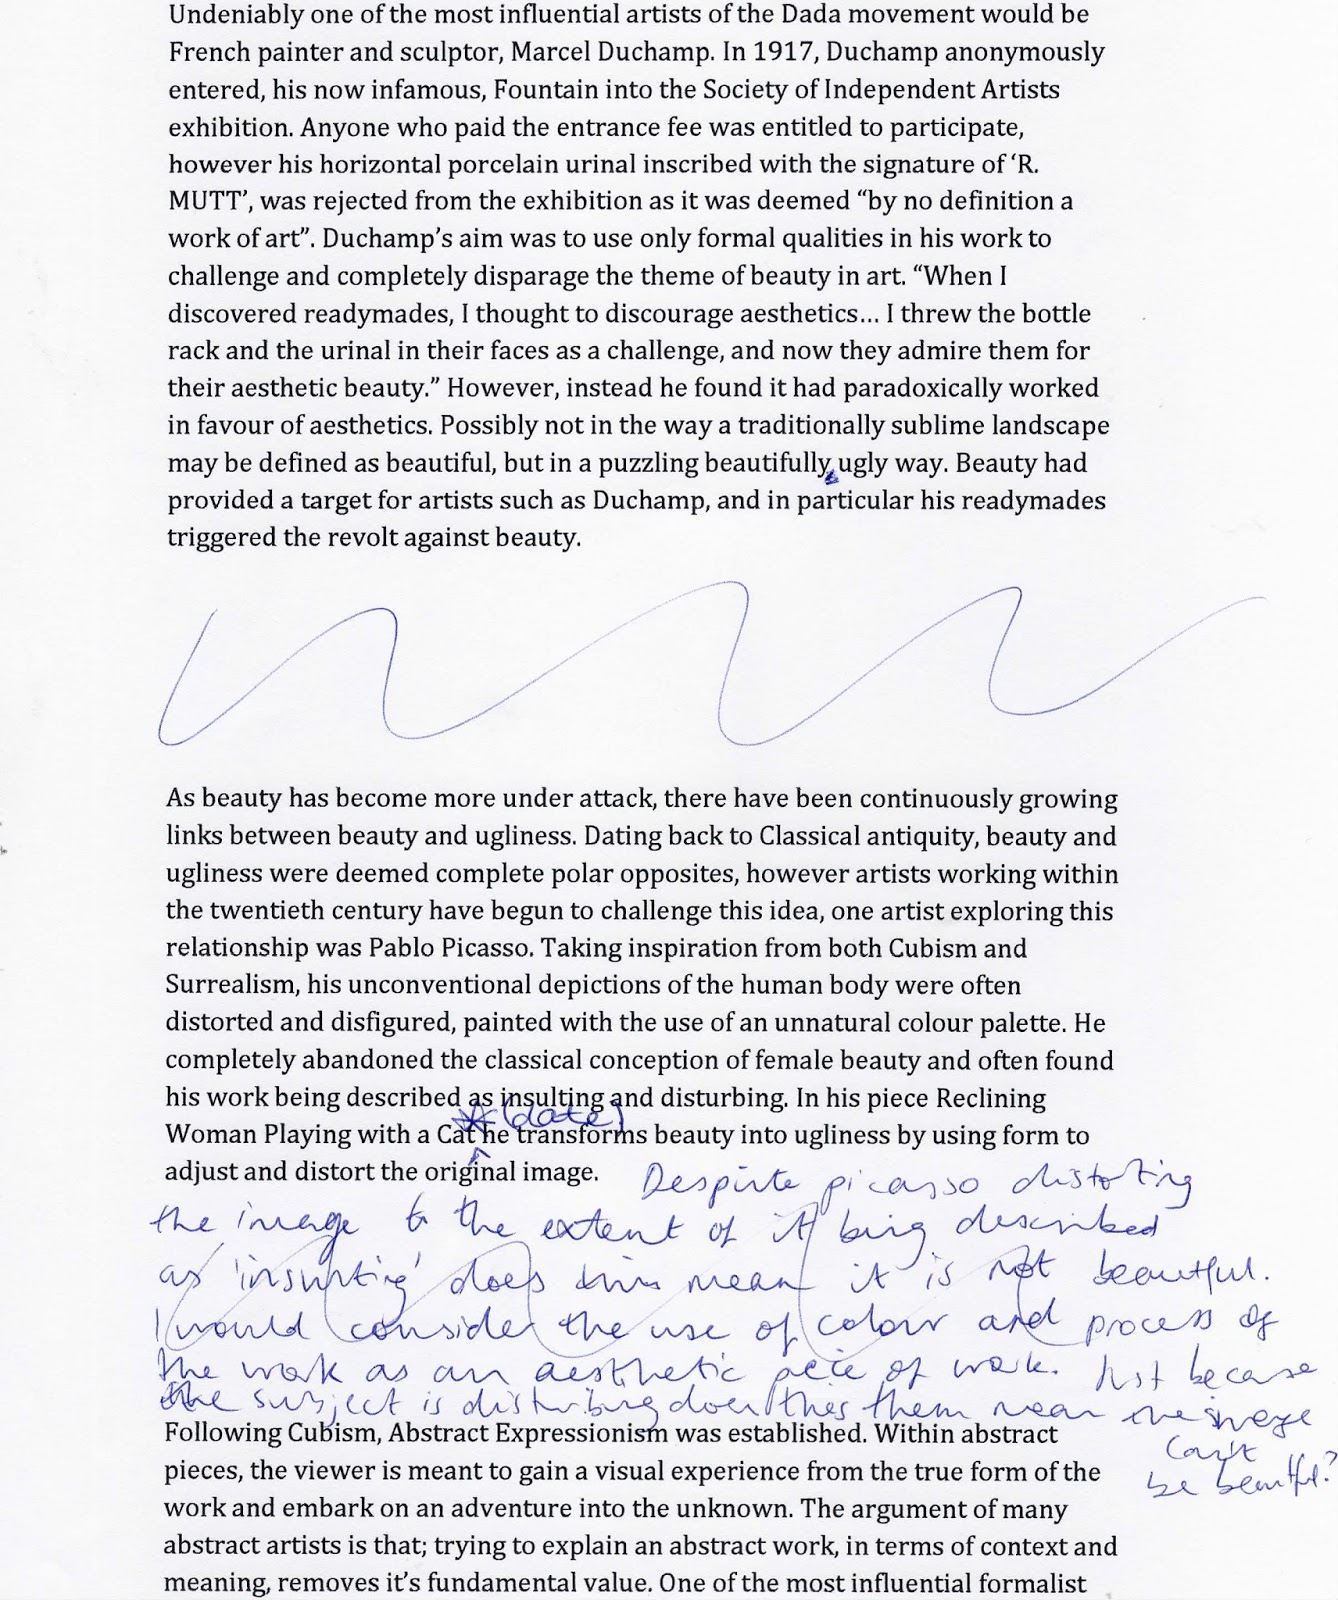 Undeniably one of the most influential artists of the Dada movement would be
French painter and sculptor, Marcel Duchamp. In 1917, Duchamp anonymously
entered, his now infamous, Fountain into the Society of Independent Artists
exhibition. Anyone who paid the entrance fee was entitled to participate,
however his horizontal porcelain urinal inscribed with the signature of ‘R.
MUTT’, was rejected from the exhibition as it was deemed “by no definition a
work of art”. Duchamp’s aim was to use only formal qualities in his work to
challenge and completely disparage the theme of beauty in art. “When I
discovered readymades, I thought to discourage aesthetics… I threw the bottle
rack and the urinal in their faces as a challenge, and now they admire them for
their aesthetic beauty.” However, instead he found it had paradoxically worked
in favour of aesthetics. Possibly not in the way a traditionally sublime landscape
may be defined as beautiful, but in a puzzling beautifully, ugly way. Beauty had
provided a target for artists such as Duchamp, and in particular his readymades
triggered the revolt against beauty.
As beauty has become more under attack, there have been continuously growing
links between beauty and ugliness. Dating back to Classical antiquity, beauty and
ugliness were deemed complete polar opposites, however artists working within
the twentieth century have begun to challenge this idea, one artist exploring this
relationship was Pablo Picasso. Taking inspiration from both Cubism and
Surrealism, his unconventional depictions of the human body were often
distorted and disfigured, painted with the use of an unnatural colour palette. He
completely abandoned the classical conception of female beauty and often found
his work being described as insulting and disturbing. In his piece Reclining
(date)
Woman Playing with a Cat he transforms beauty into ugliness by using form to
adjust and distort the original image. Despite picasso distorting
the image to the extent of it being described
as 'insulting' does this mean it is not beautiful.
I would consider the use of colour and process of
the work as an aesthetic peice of work. Just because
the subject is disturbing does this them mean the image
can't
be beautiful?
Following Cubism, Abstract Expressionism was established. Within abstract
pieces, the viewer is meant to gain a visual experience from the true form of the
work and embark on an adventure into the unknown. The argument of many
abstract artists is that; trying to explain an abstract work, in terms of context and
meaning, removes it’s fundamental value. One of the most influential formalist